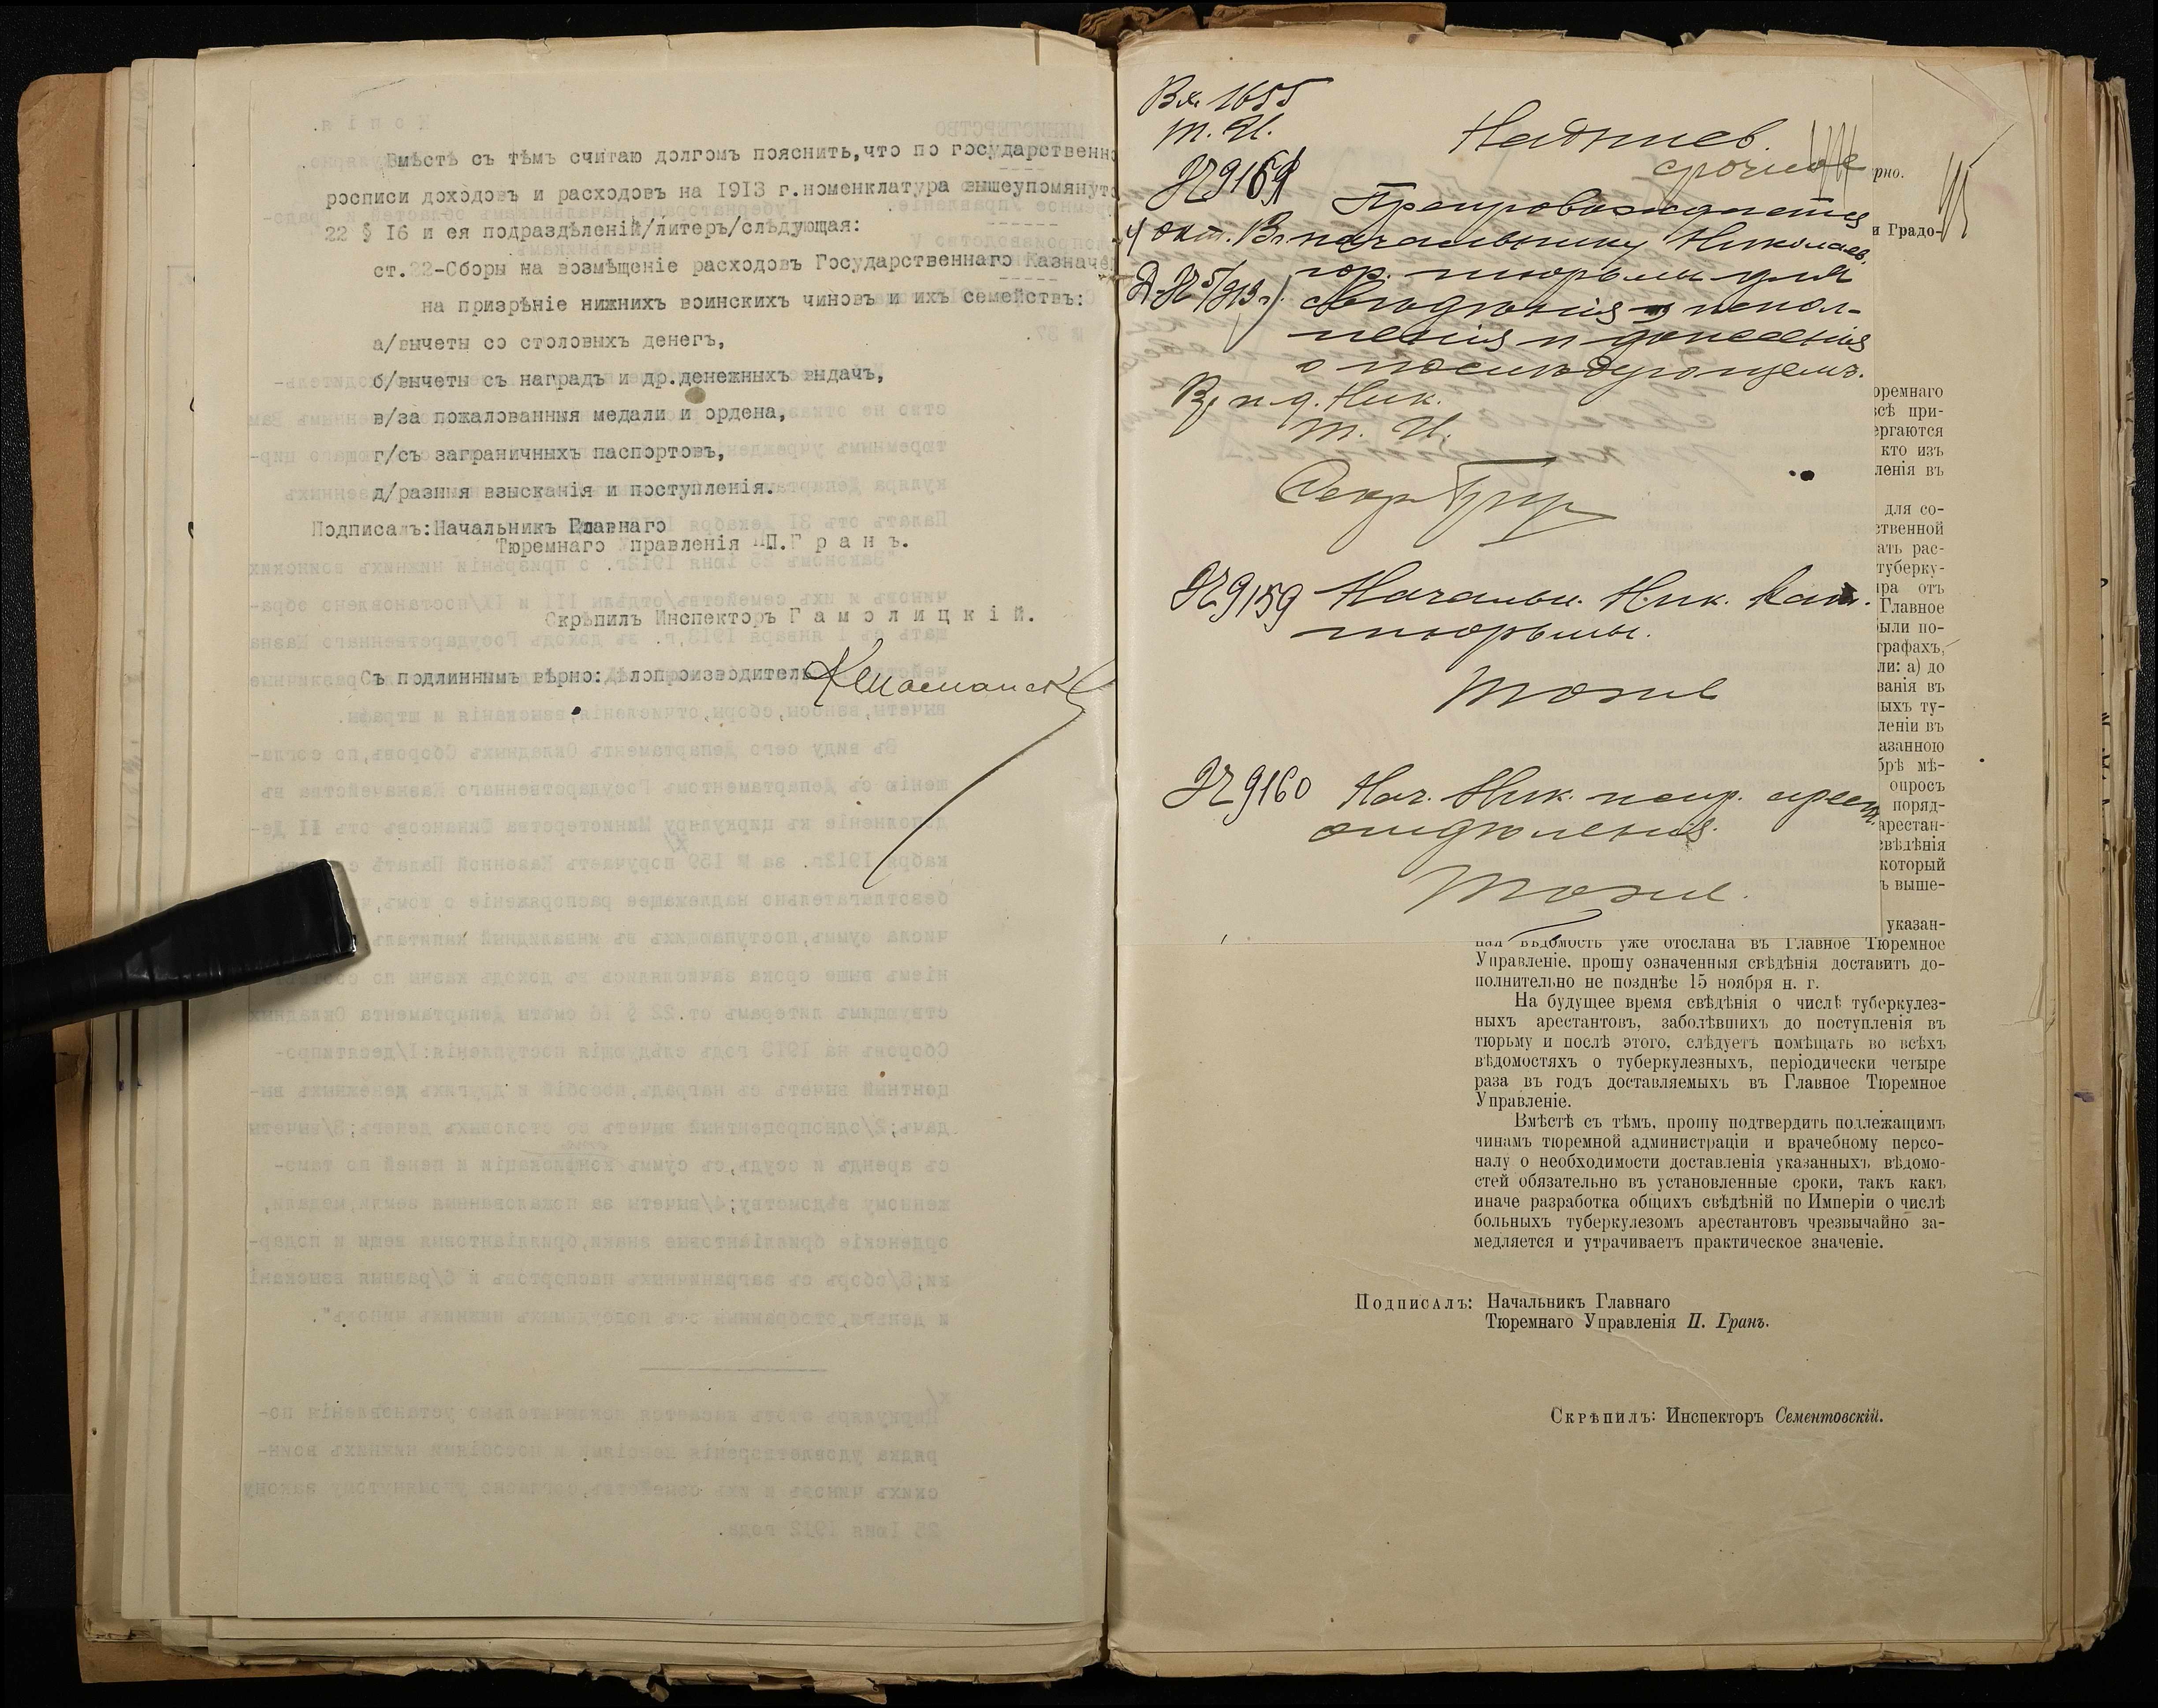 Вмѣстѣ съ тѣмъ считаю долгомъ пояснить,что по государственно
росписи доходовъ и расходовъ на 1913 г.номенклатура вышеупомянуто
22 § 16 и ея подраздѣленій/литеръ/слѣдующая:
ст.22-Сборы на возмѣщеніе расходовъ Государственнаго Казначе
на призрѣніе нижнихъ воинскихъ чиновъ и ихъ семействъ:
а/вычеты со столовыхъ денегъ,
б/вычеты съ наградъ и др.денежныхъ выдачъ,
в/за пожалованныя медали и ордена,
г/съ заграничныхъ паспортовъ,
д/разныя взысканія и поступленія.
Подписалъ:Начальникъ Главнаго
Тюремнаго правленія П.Г р а н ъ.
Скрѣпилъ Инспекторъ Г а м о л и ц к і й.
Съ подлиннымъ вѣрно: Дѣлопроизводитель
Вх. 1655
Т. И.
Надпись.
срочное
№ 9159
Препровождается
4 окт. Вр начальнику Николаев.
гор. тюрьмы для
свѣдѣнія и испол-
ненія и донесенія
о послѣдующемъ.
В. и. д. Ник.
Т. И.
Секр.
№ 9159 Начальн. Ник. кат.
тюрьмы.
Тоже
№ 9160 Нач. Ник. испр. арест.
отдѣленія.
Тоже.
рно.
и Градо-
оремнаго
всѣ при-
ергаются
кто изъ
ленія въ
для со-
ственной
ать рас-
туберку-
яра отъ
Главное
были по-
графахъ,
ли: а) до
ванія въ
ыхъ ту-
леніи въ
азанною
брѣ мѣ-
опросъ
поряд-
арестан-
свѣдѣнія
который
ъ выше-
указан-
ная вѣдомость уже отослана въ Главное Тюремное
Управленіе, прошу означенныя свѣдѣнія доставить до-
полнительно не позднѣе 15 ноября н. г.
На будущее время свѣдѣнія о числѣ туберкулез-
ныхъ арестантовъ, заболѣвшихъ до поступленія въ
тюрьму и послѣ этого, слѣдуетъ помѣщать во всѣхъ
вѣдомостяхъ о туберкулезныхъ, періодически четыре
раза въ годъ доставляемыхъ въ Главное Тюремное
Управленіе.
Вмѣстѣ съ тѣмъ, прошу подтвердить подлежащимъ
чинамъ тюремной администраціи и врачебному персо-
налу о необходимости доставленія указанныхъ вѣдомо-
стей обязательно въ установленные сроки, такъ какъ
иначе разработка общихъ свѣдѣній по Имперіи о числѣ
больныхъ туберкулезомъ арестантовъ чрезвычайно за-
медляется и утрачиваетъ практическое значеніе.
Подписалъ: Начальникъ Главнаго
Тюремнаго Управленія П. Гранъ.
Скрѣпилъ: Инспекторъ Сементовскій.